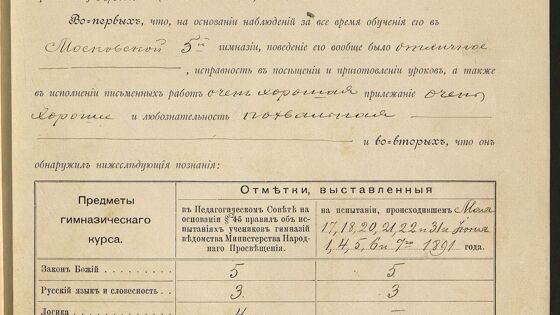 Во-первыхъ, что, на основаніи наблюденій за все время обученія его въ
Московской 5й гимназіи, поведеніе его вообще было отличное
, исправность въ посѣщеніи и приготовленіи уроковъ, а также
въ исполненіи письменныхъ работъ очень хорошая прилежаніе очень
хорошее и любознательность похвальная
и во-вторыхъ, что онъ
обнаружилъ нижеслѣдующія познанія:
Предметы
гимназическаго
курса.
Отмѣтки, выставленныя
въ Педагогическомъ Совѣтѣ на
основаніи § 45 правилъ объ ис-
пытаніяхъ учениковъ гимназій
вѣдомства Министерства Народ-
наго Просвѣщенія.
на испытаніи, происходившемъ Мая
17, 18, 20, 21, 22 и 31 и Іюня
1, 4, 5, 6 и 7го 1891 года.
Законъ Божій 5 5
Русскій языкъ и словесность 3 3
Логика 4 —